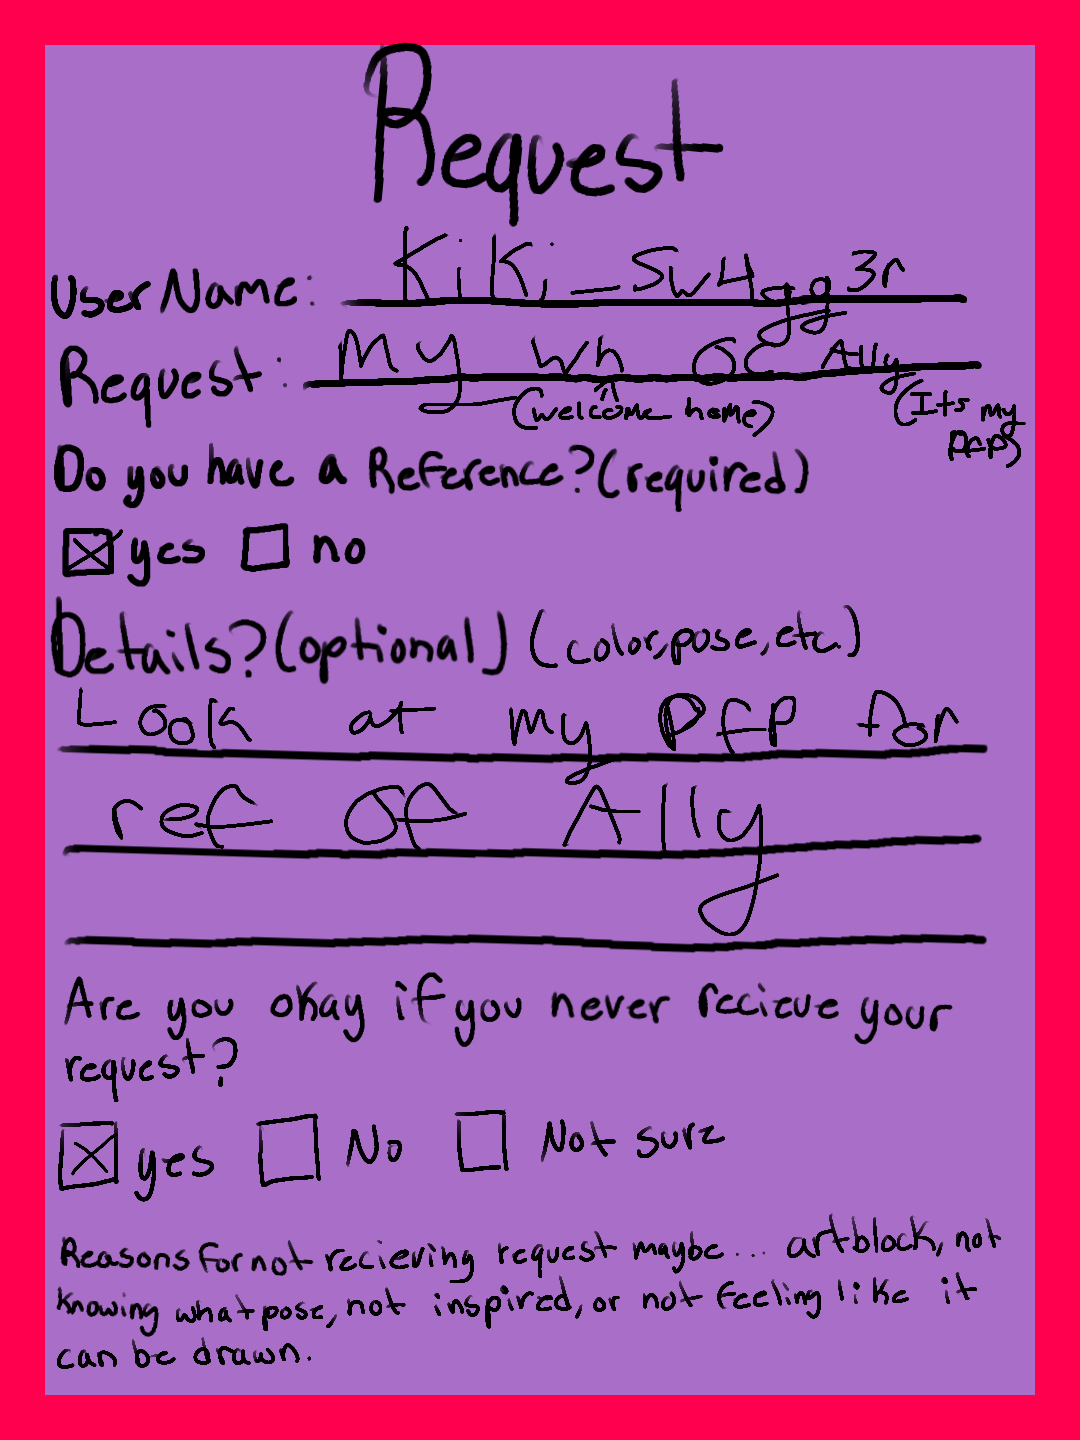 Request
UserName: KiKi_Sw4gg3r
Request: My wh OC Ally
(welcome home) (Its my pfp)
Do you have a Reference? (required)
yes no
Details? (optional) (color, pose, etc.)
Look at my pfp for
ref of Ally
Are you okay if you never recieve your
request?
yes No Not sure
Reasons for not recieving request maybe... artblock, not
knowing what pose, not inspired, or not feeling like it
can be drawn.